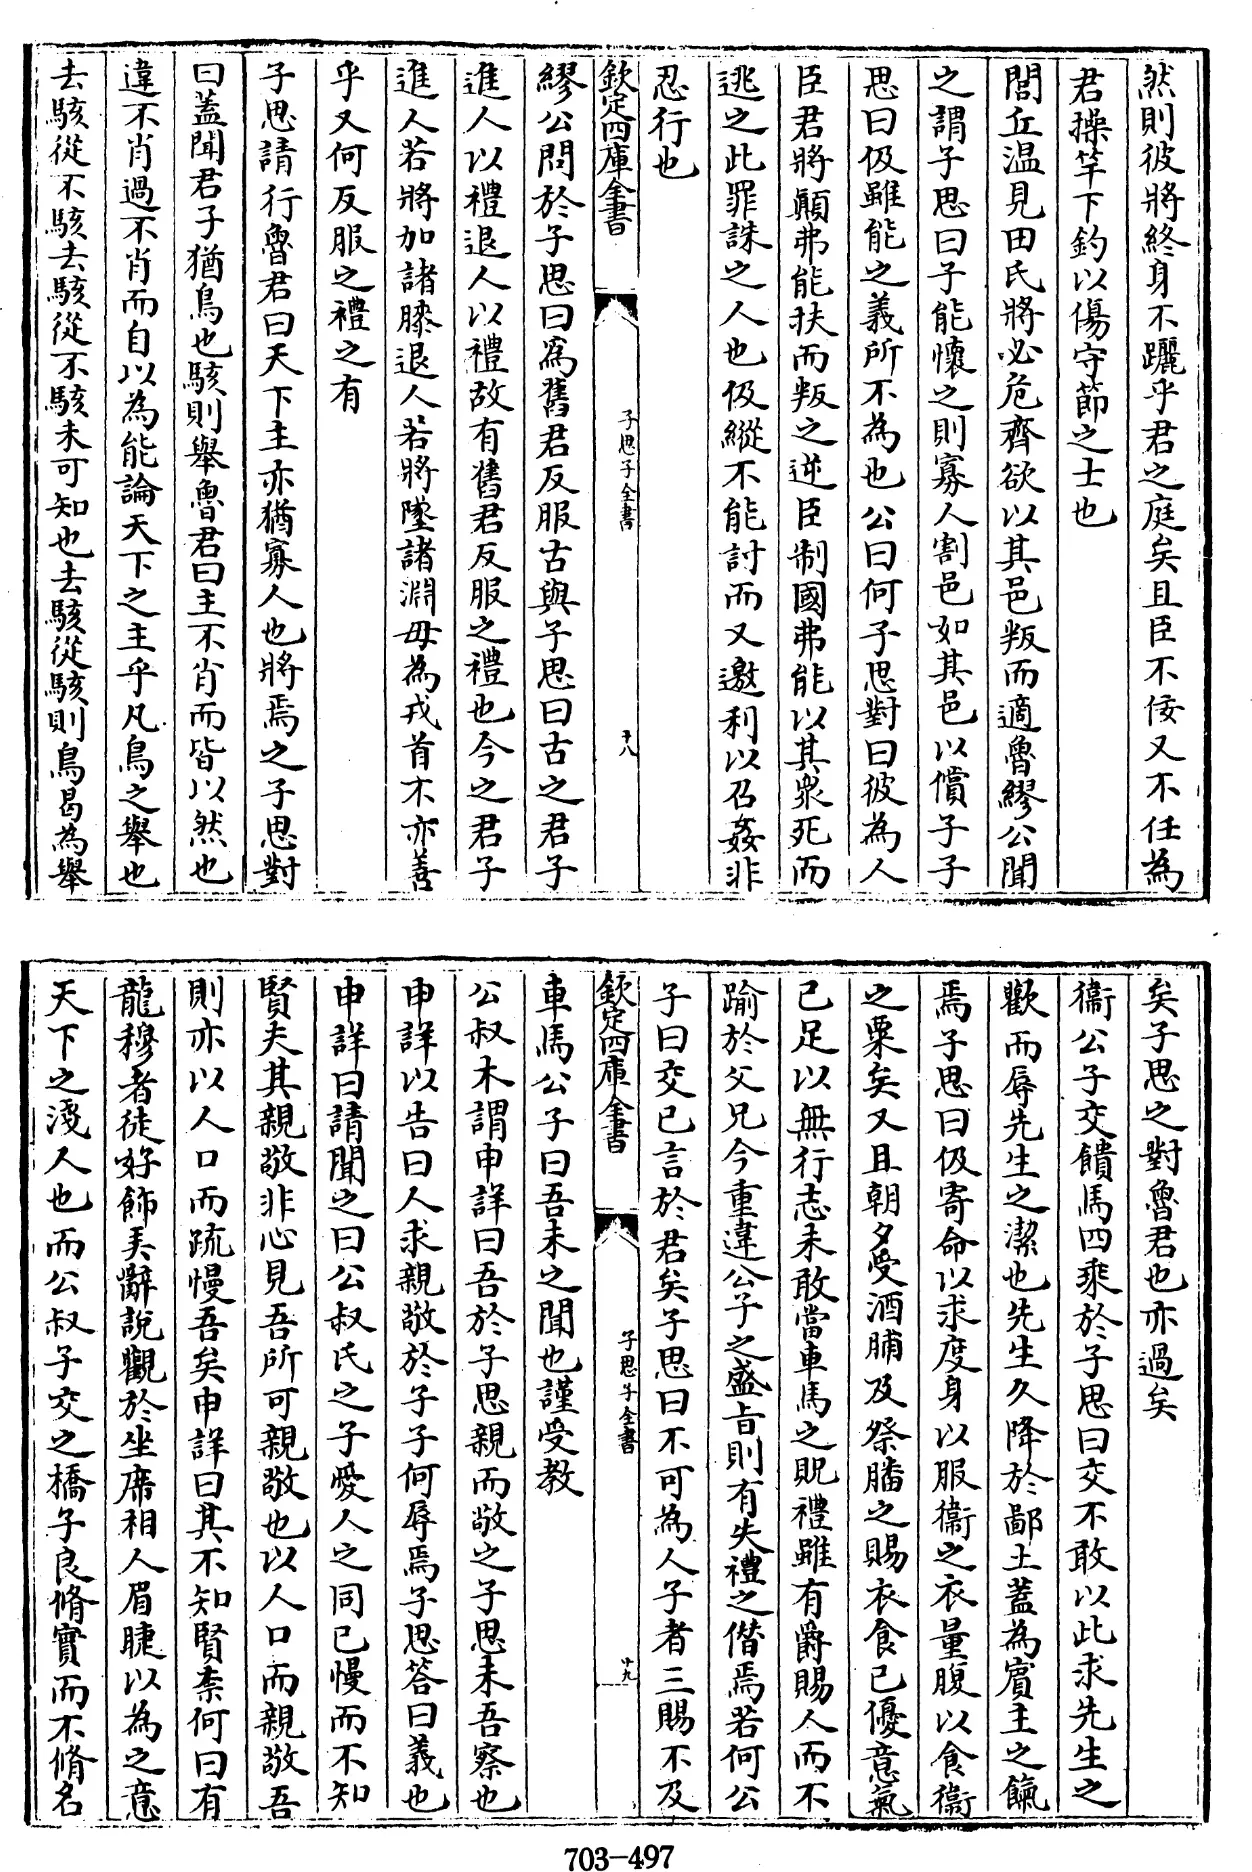 然則彼將終身不躧乎君之庭矣且臣不佞又不任為
君操竿下釣以傷守節之士也
閭丘温見田氏將必危齊欲以其邑叛而適魯繆公聞
之謂子思曰子能懷之則寡人割邑如其邑以償子子
思曰伋雖能之義所不為也公曰何子思對曰彼為人
臣君將顛弗能扶而叛之逆臣制國弗能以其衆死而
逃之此罪誅之人也伋縱不能討而又邀利以召姦非
忍行也
欽定四庫全書
子思子全書
十八
繆公問於子思曰為舊君反服古與子思曰古之君子
進人以禮退人以禮故有舊君反服之禮也今之君子
進人若將加諸膝退人若將墜諸淵毋為戎首不亦善
乎又何反服之禮之有
子思請行魯君曰天下主亦猶寡人也將焉之子思對
曰蓋聞君子猶鳥也駭則舉魯君曰主不肖而皆以然也
違不肖過不肖而自以為能論天下之主乎凡鳥之舉也
去駭從不駭去駭從不駭未可知也去駭從駭則鳥曷為舉
矣子思之對魯君也亦過矣
衞公子交饋馬四乘於子思曰交不敢以此求先生之
歡而辱先生之潔也先生久降於鄙土蓋為賓主之餼
焉子思曰伋寄命以求度身以服衞之衣量腹以食衞
之粟矣又且朝夕受酒脯及祭膰之賜衣食已優意氣
已足以無行志未敢當車馬之貺禮雖有爵賜人而不
踰於父兄今重違公子之盛旨則有失禮之僭焉若何公
子曰交已言於君矣子思曰不可為人子者三賜不及
欽定四庫全書
子思子全書
十九
車馬公子曰吾未之聞也謹受教
公叔木謂申詳曰吾於子思親而敬之子思未吾察也
申詳以告曰人求親敬於子子何辱焉子思答曰義也
申詳曰請聞之曰公叔氏之子愛人之同己慢而不知
賢夫其親敬非心見吾所可親敬也以人口而親敬吾
則亦以人口而疏慢吾矣申詳曰其不知賢柰何曰有
龍穆者徒好飾美辭說觀於坐席相人眉睫以為之意
天下之淺人也而公叔子交之橋子良脩實而不脩名
703-497